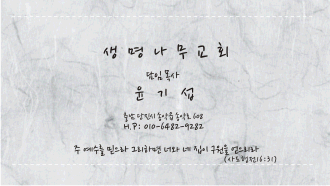 생명나무교회
담임목사
윤기섭
충남 당진시 송악읍 송악로 608
H.P: 010-6482-9282
주 예수를 믿으라 그리하면 너와 네 집이 구원을 얻으리라
(사도행전16:31)